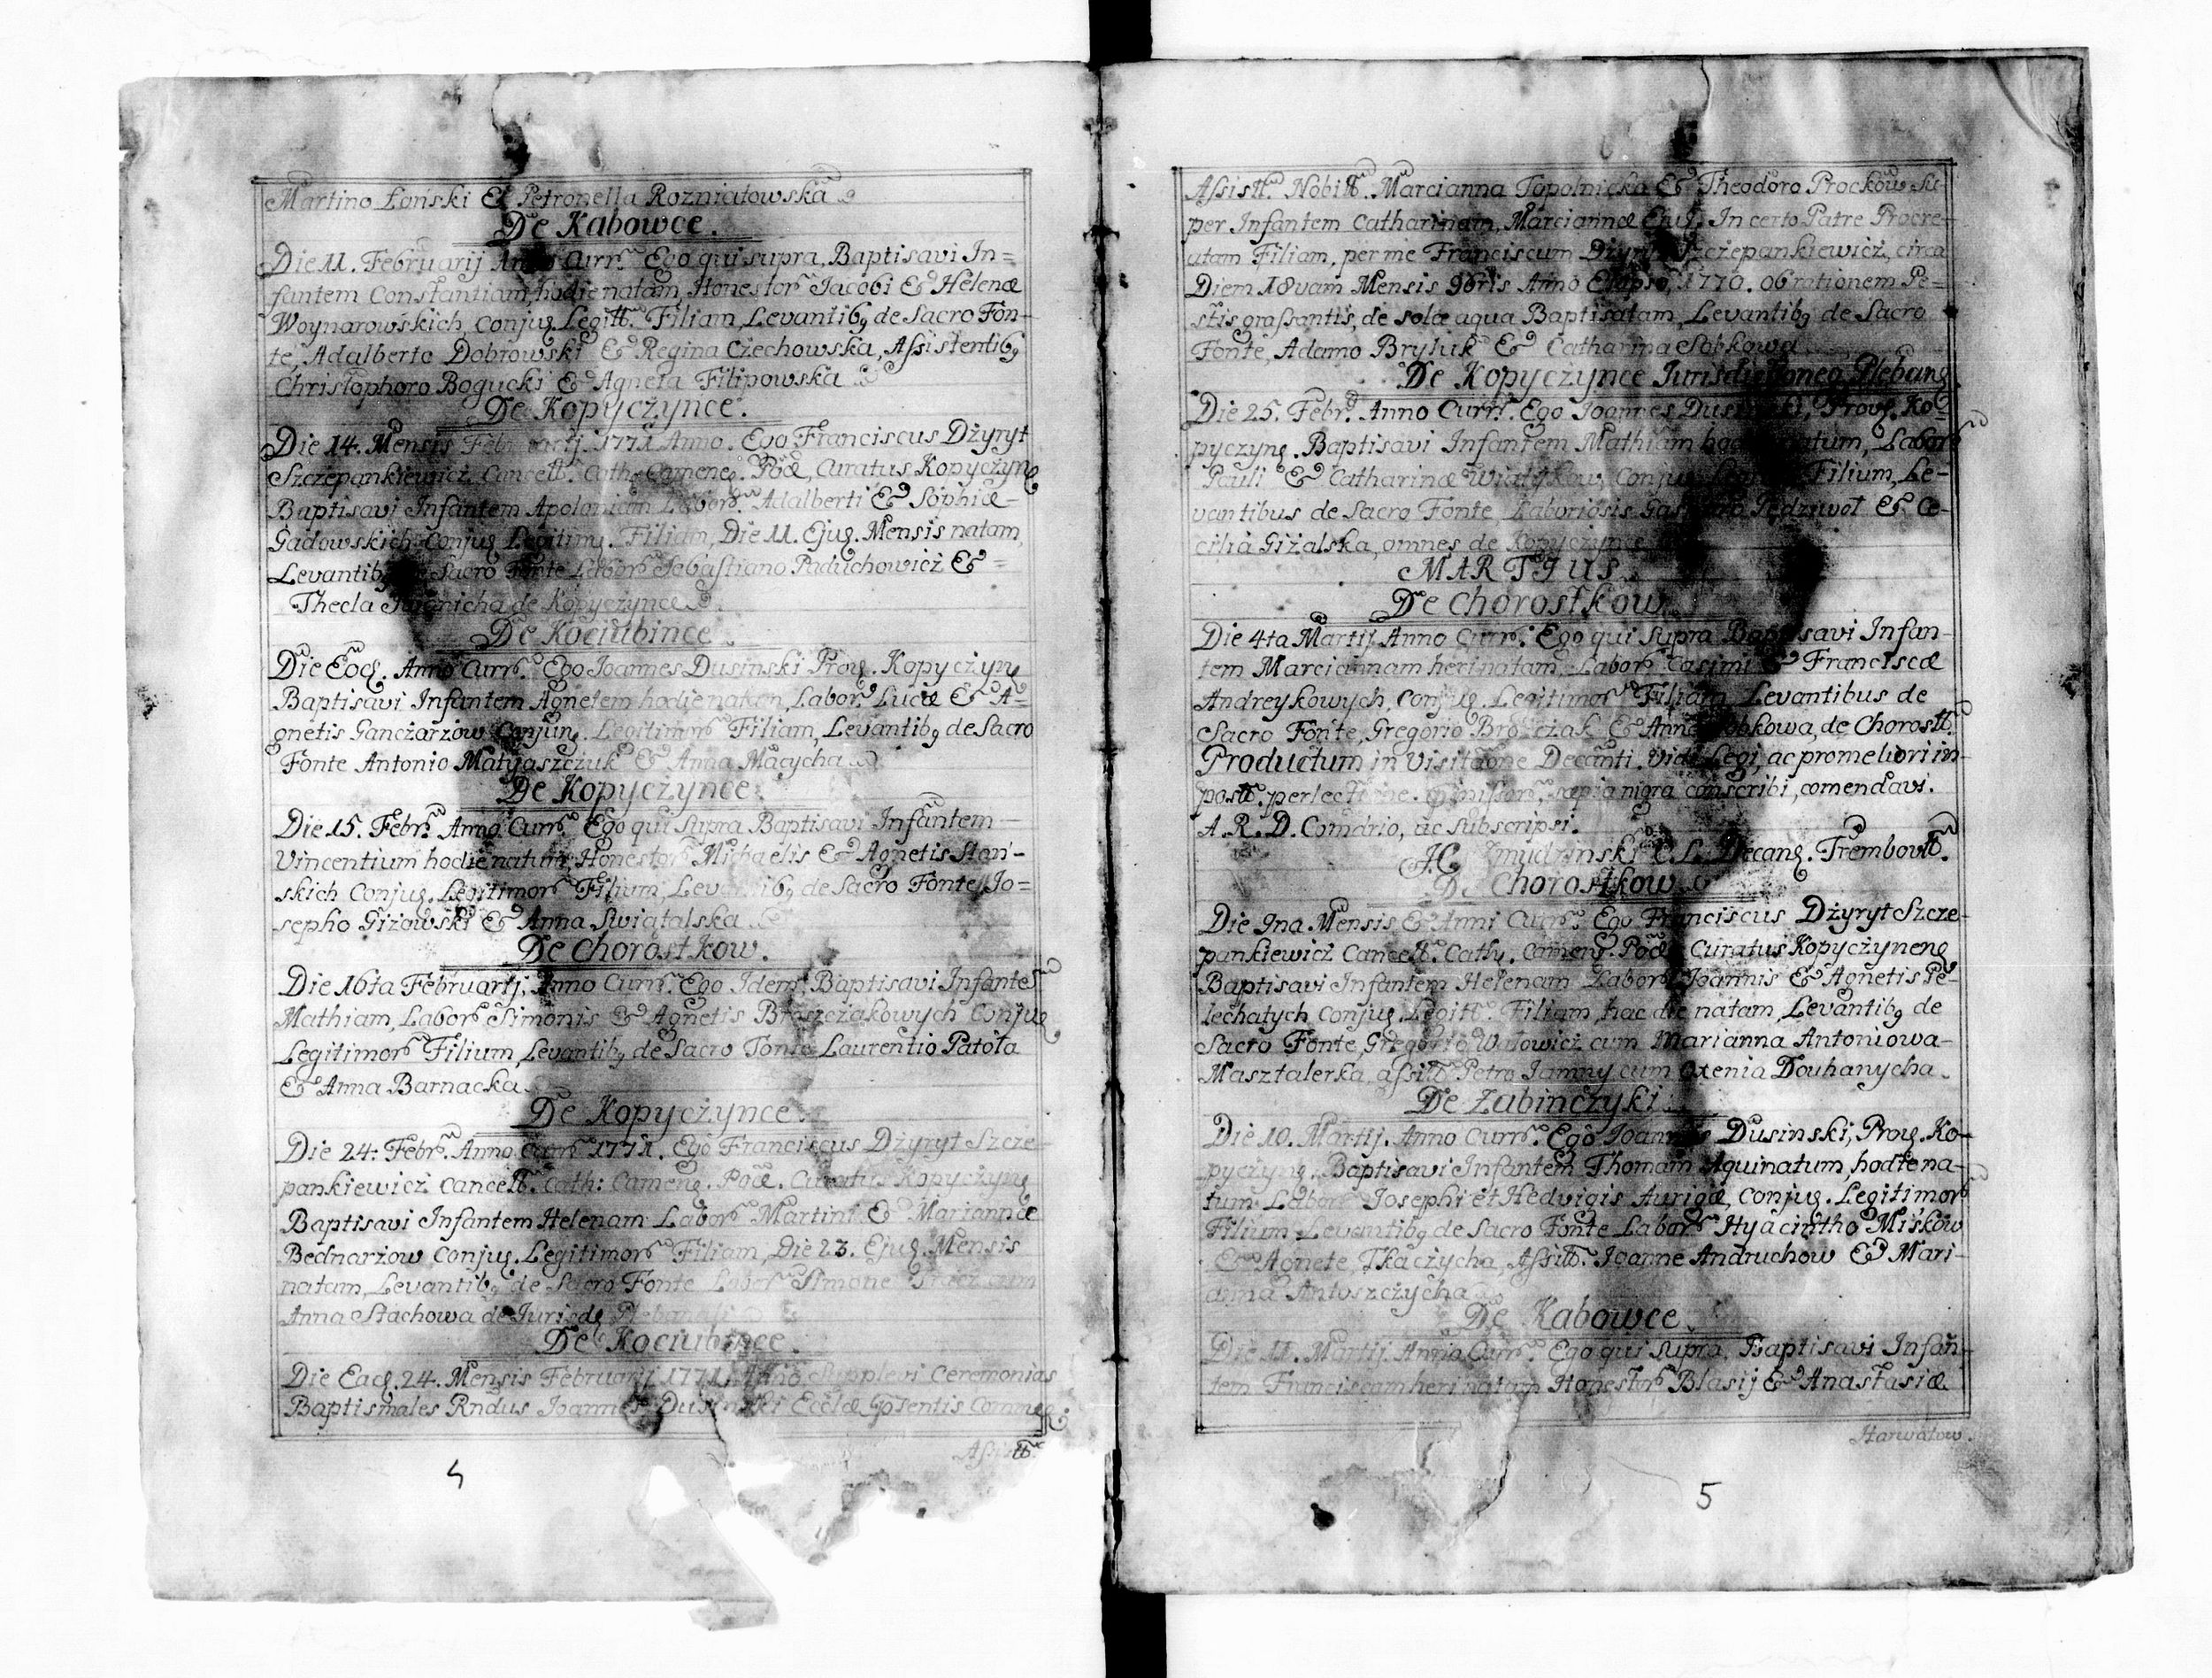 Martino Łański & Petronella Rozniatowska
De Kabowce.
Die 11. Februarij Anno Curr. Ego qui supra, Baptisavi In=
fantem Constantiam, hodie natam, Honestor Jacobi & Helenæ
Woynarowskich, Conjug. Legitt. Filiam, Levantib9 de Sacro Fon-
te, Adalberto Dobrowski & Regina Czechowska, Assistentib9
Christophoro Bogucki & Agneta Filipowska
De Kopyczynce.
Die 14. Mensis Februarij 1771 Anno. Ego Franciscus Dżyryt
Szczepankiewicż Cancell. Cath. Camene. Pod, Curatus Kopyczyng
Baptisavi Infantem Apoloniam Labor. Adalberti & Sophiæ
Gadowskich Conjug Legitimg. Filiam, Die 11. Ejug. Mensis natam,
Levantib9 de Sacro Fonte Labor Sebastiano Paduchowicż & =
Thecla de Kopyczynce
De Kociubince
Die Eod. Anno Curr. Ego Joannes Dusinski Prog. Kopyczyng
Baptisavi Infantem Agnetem hodie natam, Labor. Lucæ & A=
gnetis Ganczarzow Conjun. Legitimor Filiam, Levantib9 de Sacro
Fonte Antonio Matyaszczuk & Anna Macycha
De Kopyczynce.
Die 15. Febr. Anno Curr. Ego qui Supra Baptisavi Infantem
Vincentium hodie natum, Honestor Michaelis & Agnetis Stan-
skich Conjug. Legitimor Filium, Levantib9 de Sacro Fonte, Jo=
sepho Giżowski & Anna Swiatalska
De Chorostkow.
Die 16ta Februarij, Anno Curr. Ego Idem, Baptisavi Infante
Mathiam, Labor Simonis & Agnetis Błaszczakowych Conjug
Legitimor Filium, Levantib9 de Sacro Fonte Laurentio Patoła
& Anna Barnacka
De Kopyczynce.
Die 24. Febr. Anno Curr 1771. Ego Franciscus Dżyryt Szcze-
pankiewicż Cancell. Cath: Cameng. Pod. Curatus Kopyczyng
Baptisavi Infantem Helenam Labor Martini & Mariannæ
Bednarzow Conjug. Legitimor Filiam, Die 23. Ejug. Mensis
natam, Levantib9 de Sacro Fonte Labor Simone cum
Anna Stachowa de Jurisd
De Kociubince.
Die Ead. 24. Mensis Februarij 1771 Anno, Supplevi Ceremonias
Baptismales Rndus Joannes Dusinski Ecclæ Commeg
Assistt.
4
Assistt. Nobill. Marcianna Topolnicka & Theodoro Prockow Su-
per Infantem Catharinam, Mariannæ Ejug. Incerto Patre Procre-
atam Filiam, per me Franciscum Dżyryt Szczepankiewicż, circa
Diem 18vam Mensis 9bris Anno Elapso, 1770. ob rationem Pe=
stis grassantis, de sola aqua Baptisatam, Levantib9 de Sacro
Fonte, Adamo Bryluk & Catharina Sobkowa
De Kopyczynce Jurisdictioneg Plebang
Die 25. Febr. Anno Curr. Ego Joannes Dusinski, Prog. Ko-
pyczyng. Baptisavi Infantem Mathiam hodie natum, Labor
Pauli & Catharinæ Conjug Filium, Le-
vantibus de Sacro Fonte, Laboriosis Pędziwot & Ce-
cilia Giżalska, omnes de Kopyczynce
MARTIUS
De Chorostkow
Die 4ta Martij, Anno Curr. Ego qui Supra Baptisavi Infan-
tem Mariannam heri natam, Labor Casimi & Franciscæ
Andreykowych, Conjug. Legitimor Filiam Levantibus de
Sacro Fonte, Gregorio & Anna Sobkowa, de Chorostt.
Productum in Visitaone Decanti, Vidi Legi, ac pro meliori in-
postt. nigra conscribi, comendavi.
A. R. D. Comdrio, ac Subscripsi.
Zmudzinski C. L. Decang. Trembowtt.
De Chorostkow
Die 9na Mensis & Anni Curr. Ego Franciscus Dżyryt Szcze-
pankiewicż Cancell. Cath. Cameng. Pod. Curatus Kopyczyneng
Baptisavi Infantem Helenam Labor Joannis & Agnetis Pe-
lechatych Conjug. Legitt. Filiam, hac die natam, Levantib9 de
Sacro Fonte, Gregorio Watowicż cum Marianna Antoniowa
Masztalerka, assitt. Petro Jamny cum Oxenia Douhanycha.
De Żabinczyki
Die 10. Martij. Anno Curr. Ego Joannes Dusinski, Prog. Ko-
pyczyng. Baptisavi Infantem Thomam Aquinatum, hodie na-
tum Labor Josephi et Hedvigis Aurigæ, Conjug. Legitimor
Filium Levantib9 de Sacro Fonte Labor Hyacintho Miśkow
& Agnete, Tkaczycha, Assitt. Joanne Andruchow & Mari-
anna Antoszczycha
De Kabowce
Die 11. Martij. Anno Curr. Ego qui supra, Baptisavi Infan-
tem Franciscam heri natam Honestor Blasij & Anastasiæ
Harwatow.
5